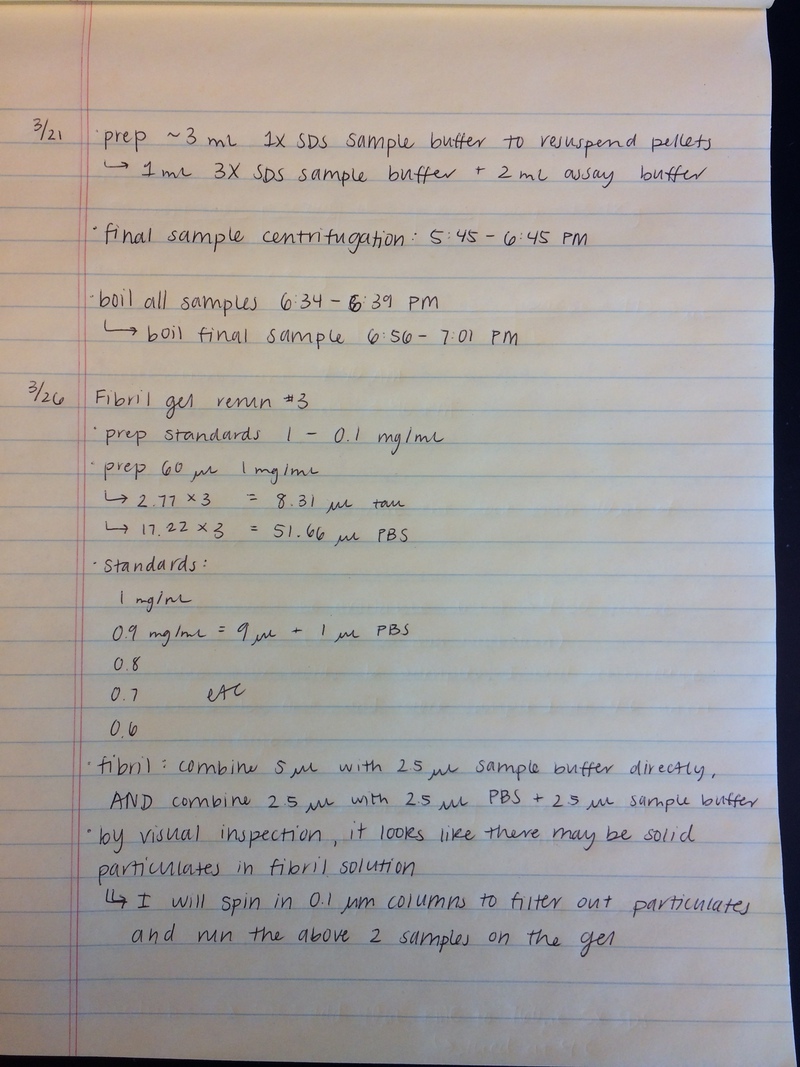 3/21 · prep ~3 mL 1X SDS sample buffer to resuspend pellets
↳ 1 mL 3X SDS sample buffer + 2 mL assay buffer
· final sample centrifugation: 5:45 - 6:45 PM
· boil all samples 6:34 - 6:39 PM
↳ boil final sample 6:56 - 7:01 PM
3/26 Fibril gel rerun #3
· prep standards 1 - 0.1 mg/mL
· prep 60 µL 1 mg/mL
↳ 2.77 x 3 = 8.31 µL tau
↳ 17.22 x 3 = 51.66 µL PBS
· standards:
1 mg/mL
0.9 mg/mL = 9 µL + 1 µL PBS
0.8
0.7 etc
0.6
· fibril: combine 5 µL with 2.5 µL sample buffer directly,
AND combine 2.5 µL with 2.5 µL PBS + 2.5 µL sample buffer
· by visual inspection, it looks like there may be solid
particulates in fibril solution
↳ I will spin in 0.1 µm columns to filter out particulates
and run the above 2 samples on the gel